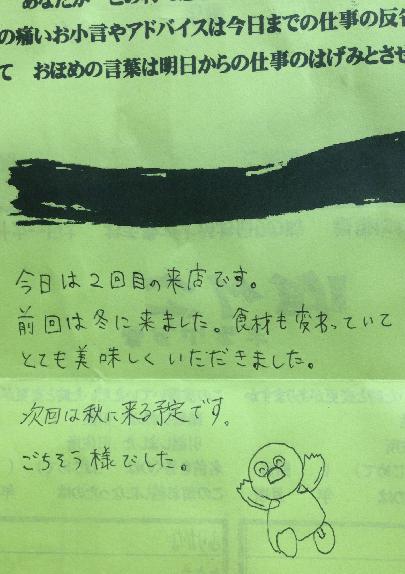 の痛いお小言やアドバイスは今日までの仕事の反省
て おほめの言葉は明日からの仕事のはげみとさせ
今日は2回目の来店です。
前回は冬に来ました。食材も変わっていて
とても美味しくいただきました。
次回は秋に来る予定です。
ごちそう様でした。